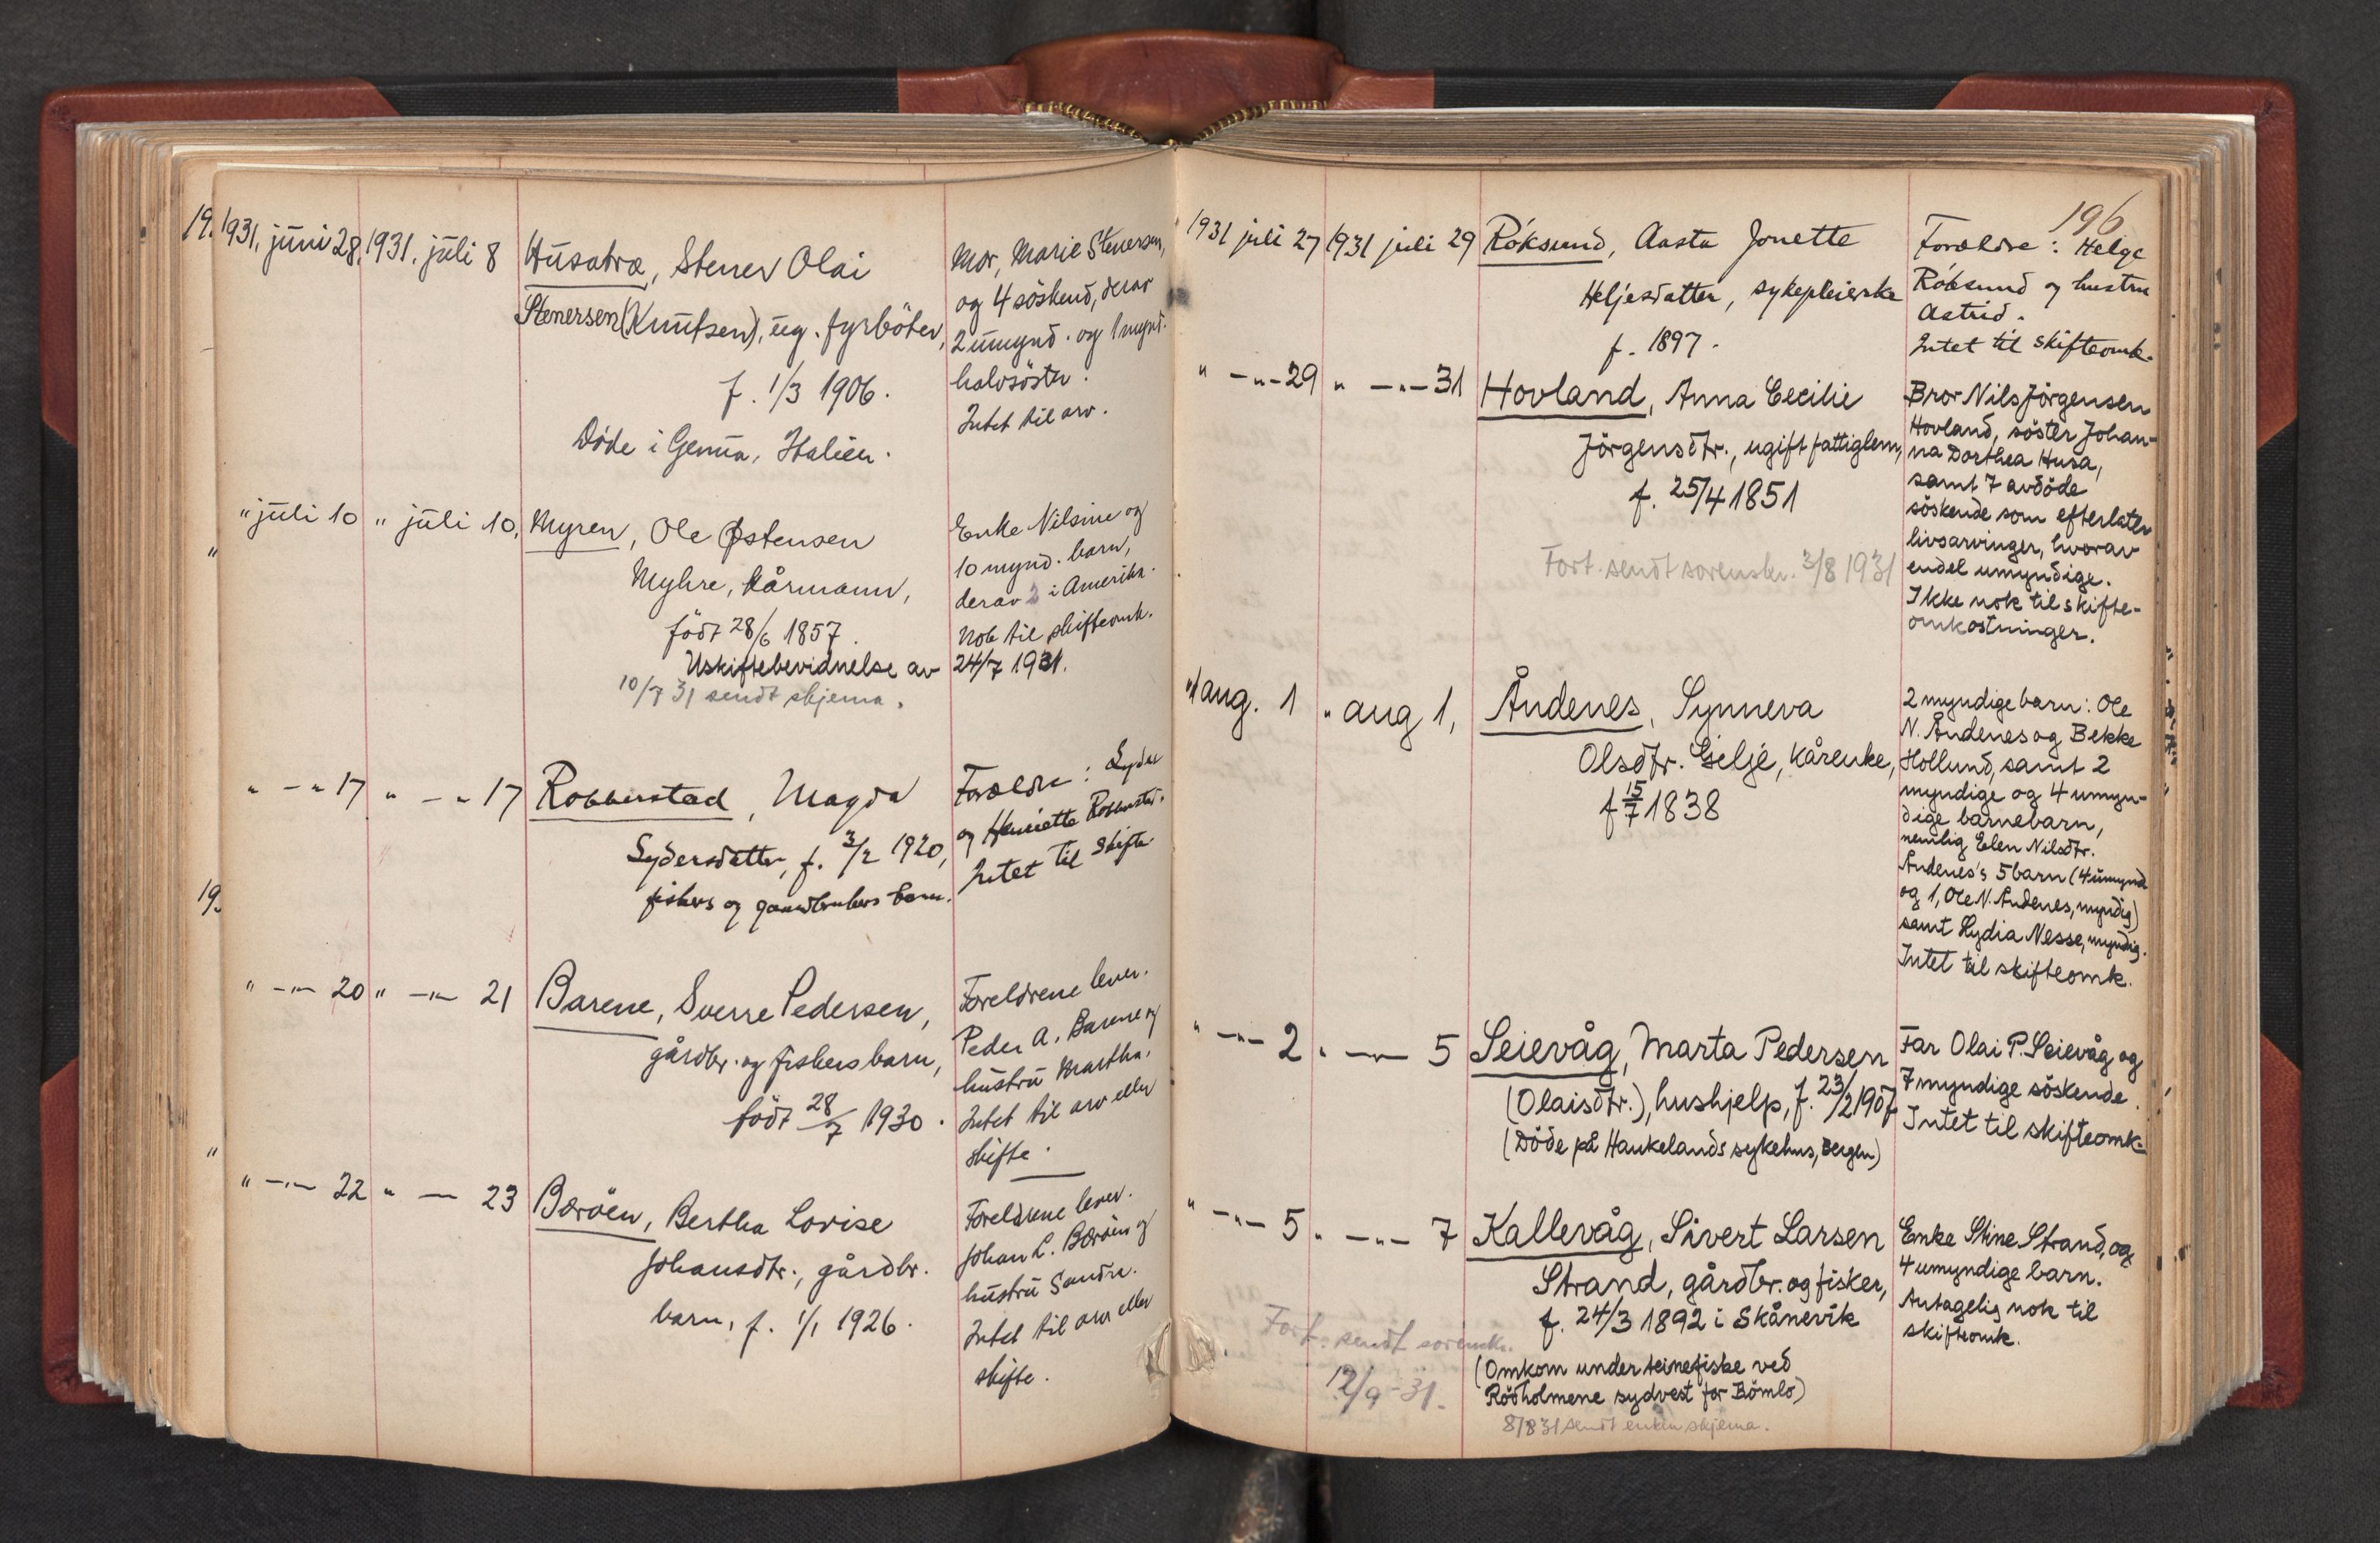 1931. juni 28. 1931. juli 8 Husabræ, Stener Olai
Stenersen (Knutsen), ug. fyrböter,
f. 1/3 1906.
Døde i Genua, Italien.
Mor, Marie Stenersen,
og 4 söskend, derav
2 umynd. og 1 mynd.
halvsöster.
Intet til arv.
" juli 10 " juli 10, Myren, Ole Østensen
Myhre, kårmann,
født 28/6 1857.
Uskiftebevidnelse av
10/7 31 sendt skjema.
Enke Nilsine og
10 mynd. barn,
derav 2 i Amerika.
Nok til skifteomk.
24/7 1931.
" -"- 17 " -"- 17 Robberstad, Magda
Sydersdatter, f. 3/2 1920,
fiskers og gaardbrukers barn.
Forældre: Syder
og Henriette Robberstad.
Intet til skifte
" -"- 20 " -"- 21 Barene, Sverre Pedersen,
gårdbr. og fiskers barn,
født 28/7 1930.
Foreldrene lever.
Peder A. Barene og
hustru Martha.
Intet til arv eller
skifte.
" -"- 22 " -"- 23 Beröen, Bertha Lovise
Johansdtr., gårdbr.
barn, f. 1/1 1926.
Foreldrene lever.
Johan L. Beröen og
hustru Sandra.
Intet til arv eller
skifte.
196
1931 juli 27 1931 juli 29 Röksund, Aasta Jonette
Heljesdatter, sykepleierske
f. 1897.
Forældre: Helge
Röksund og hustru
Astrid.
Intet til skifteomk.
" -"- 29 " -"- 31 Hovland, Anna Cecilie
Jörgensdtr., ugift fattiglem,
f. 25/4 1851
Fort. sendt sorenskr. 3/8 1931
Bror Nils Jörgensen
Hovland, söster Johan-
na Dorthea Husa,
samt 7 avdöde
söskende som efterlater
livsarvinger, hvorav
endel umyndige.
Ikke nok til skifte-
omkostninger.
" aug. 1 " aug 1, Åndenes, Synneva
Olsdtr. Gjelje, kårenke,
f 15/7 1838
2 myndige barn: Ole
N. Åndenes og Bekke
Hollund, samt 2
myndige og 4 umyn-
dige barnebarn,
nemlig Elen Nilsdtr.
Åndenes's 5 barn (4 umynd
og 1, Ole N. Åndenes, myndig)
samt Lydia Nesse, myndig.
Intet til skifteomk.
" -"- 2 " -"- 5 Seievåg, Marta Pedersen
(Olaisdtr.), hushjelp, f. 23/2 1907
(Döde på Haukelands sykehus, Bergen)
Far Olai P. Seievåg og
7 myndige söskende.
Intet til skifteomk.
" -"- 5 " -"- 7 Kallevåg, Sivert Larsen
Strand, gårdbr. og fisker,
f. 24/3 1892 i Skånevik
Fort. sendt sorenskr.
12/9-31.
(Omkom under teinefiske ved
Rödholmene sydvest for Bömlo)
8/8 31 sendt enken skjema.
Enke Stine Strand, og
4 umyndige barn.
Antagelig nok til
skifteomk.